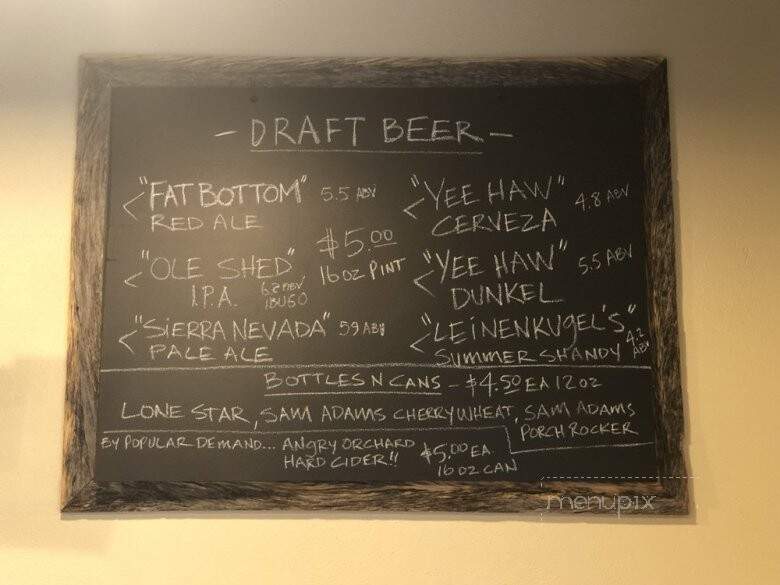 - DRAFT BEER -
< "FAT BOTTOM" 5.5 ABV
RED ALE
< "OLE SHED"
I.P.A. 6.2 ABV
IBU 60
< "SIERRA NEVADA" 59 ABV
PALE ALE
$5.00
16 OZ PINT
< "YEE HAW" 4.8 ABV
CERVEZA
< "YEE HAW" 5.5 ABV
DUNKEL
< "LEINENKUGEL'S"
SUMMER SHANDY 4.2 ABV
BOTTLES N CANS - $4.50 EA 12 OZ
LONE STAR, SAM ADAMS CHERRY WHEAT, SAM ADAMS
PORCH ROCKER
BY POPULAR DEMAND... ANGRY ORCHARD
HARD CIDER!!
$5.00 EA.
16 OZ CAN
menupix